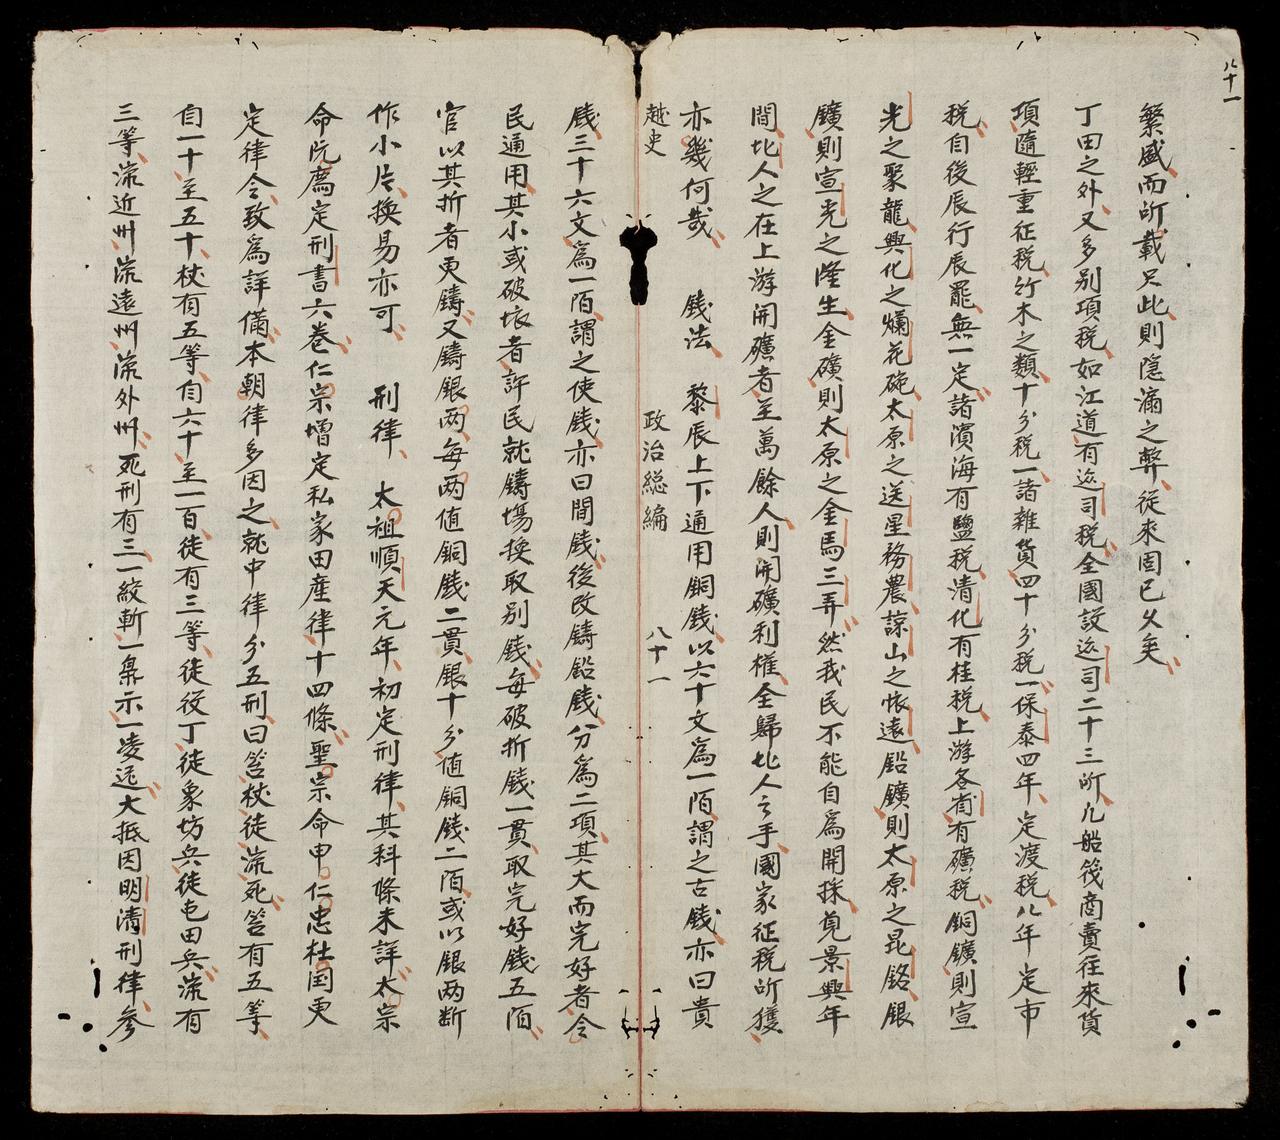 八十一
繁盛而所載只此則隱漏之弊從來固已久矣
丁田之外又多别項税如江道有巡司税全國設巡司二十三所凡船筏商賣往來貨
項隨輕重征税竹木之類十分税一諸雜貨四十分税一保泰四年定渡税八年定市
税自後辰行辰罷無一定諸濱海有鹽税清化有桂税上游各省有礦税銅鑛則宣
光之聚龍興化之爛花硔太原之送星務農諒山之悵遠鉛鑛則太原之昆銘銀
鑛則宣光之隆生金礦則太原之金馬三弄然我民不能自為開採見景興年
間北人之在上游開礦者至萬餘人則開礦利權全歸北人之手國家征税所獲
亦幾何哉　錢法　黎辰上下通用銅錢以六十文為一陌謂之古錢亦曰貴
越史　政治総編　八十一
錢三十六文為一陌謂之使錢亦曰間錢後改鑄鉛錢分為二項其大而完好者令
民通用其小或破壊者許民就鑄塲換取别錢每破折錢一貫取完好錢五陌
官以其折者更鑄又鑄銀两每两値銅錢二貫銀十分値銅錢二陌或以銀两断
作小片換易亦可　刑律　太祖順天元年初定刑律其科條未詳太宗
命阮廌定刑書六巻仁宗增定私家田産律十四條聖宗命申仁忠杜囯更
定律令致為詳備本朝律多因之就中律分五刑曰笞杖徒流死笞有五等
自一十至五十杖有五等自六十至一百徒有三等徒役丁徒象坊兵徒屯田兵流有
三等流近州流遠州流外州死刑有三一絞斬一梟示一凌迟大抵因明清刑律參